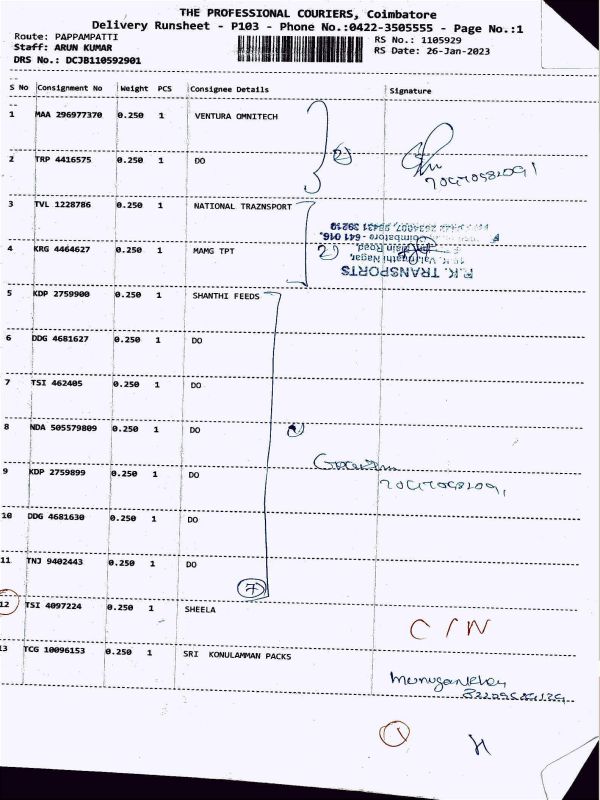 THE PROFESSIONAL COURIERS, Coimbatore
Delivery Runsheet - P103 - Phone No.:0422-3505555 - Page No.:1
Route: PAPPAMPATTI
RS No.: 1105929
Staff: ARUN KUMAR
RS Date: 26-Jan-2023
DRS No.: DCJB110592901
S No Consignment No Weight PCS Consignee Details Signature
1 MAA 296977370 0.250 1 VENTURA OMNITECH
2 TRP 4416575 0.250 1 DO
3 TVL 1228786 0.250 1 NATIONAL TRAZNSPORT
4 KRG 4464627 0.250 1 MAMG TPT
P.K. TRANSPORTS
5 KDP 2759900 0.250 1 SHANTHI FEEDS
6 DDG 4681627 0.250 1 DO
7 TSI 462405 0.250 1 DO
8 NDA 505579809 0.250 1 DO
9 KDP 2759899 0.250 1 DO
10 DDG 4681630 0.250 1 DO
11 TNJ 9402443 0.250 1 DO
7
12 TSI 4097224 0.250 1 SHEELA
C/N
13 TCG 10096153 0.250 1 SRI KONULAMMAN PACKS
1